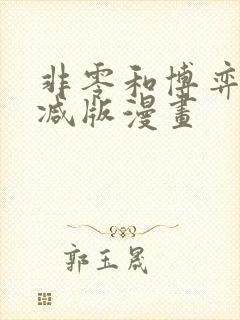 非零和博弈
减版漫畫
郭玉晟